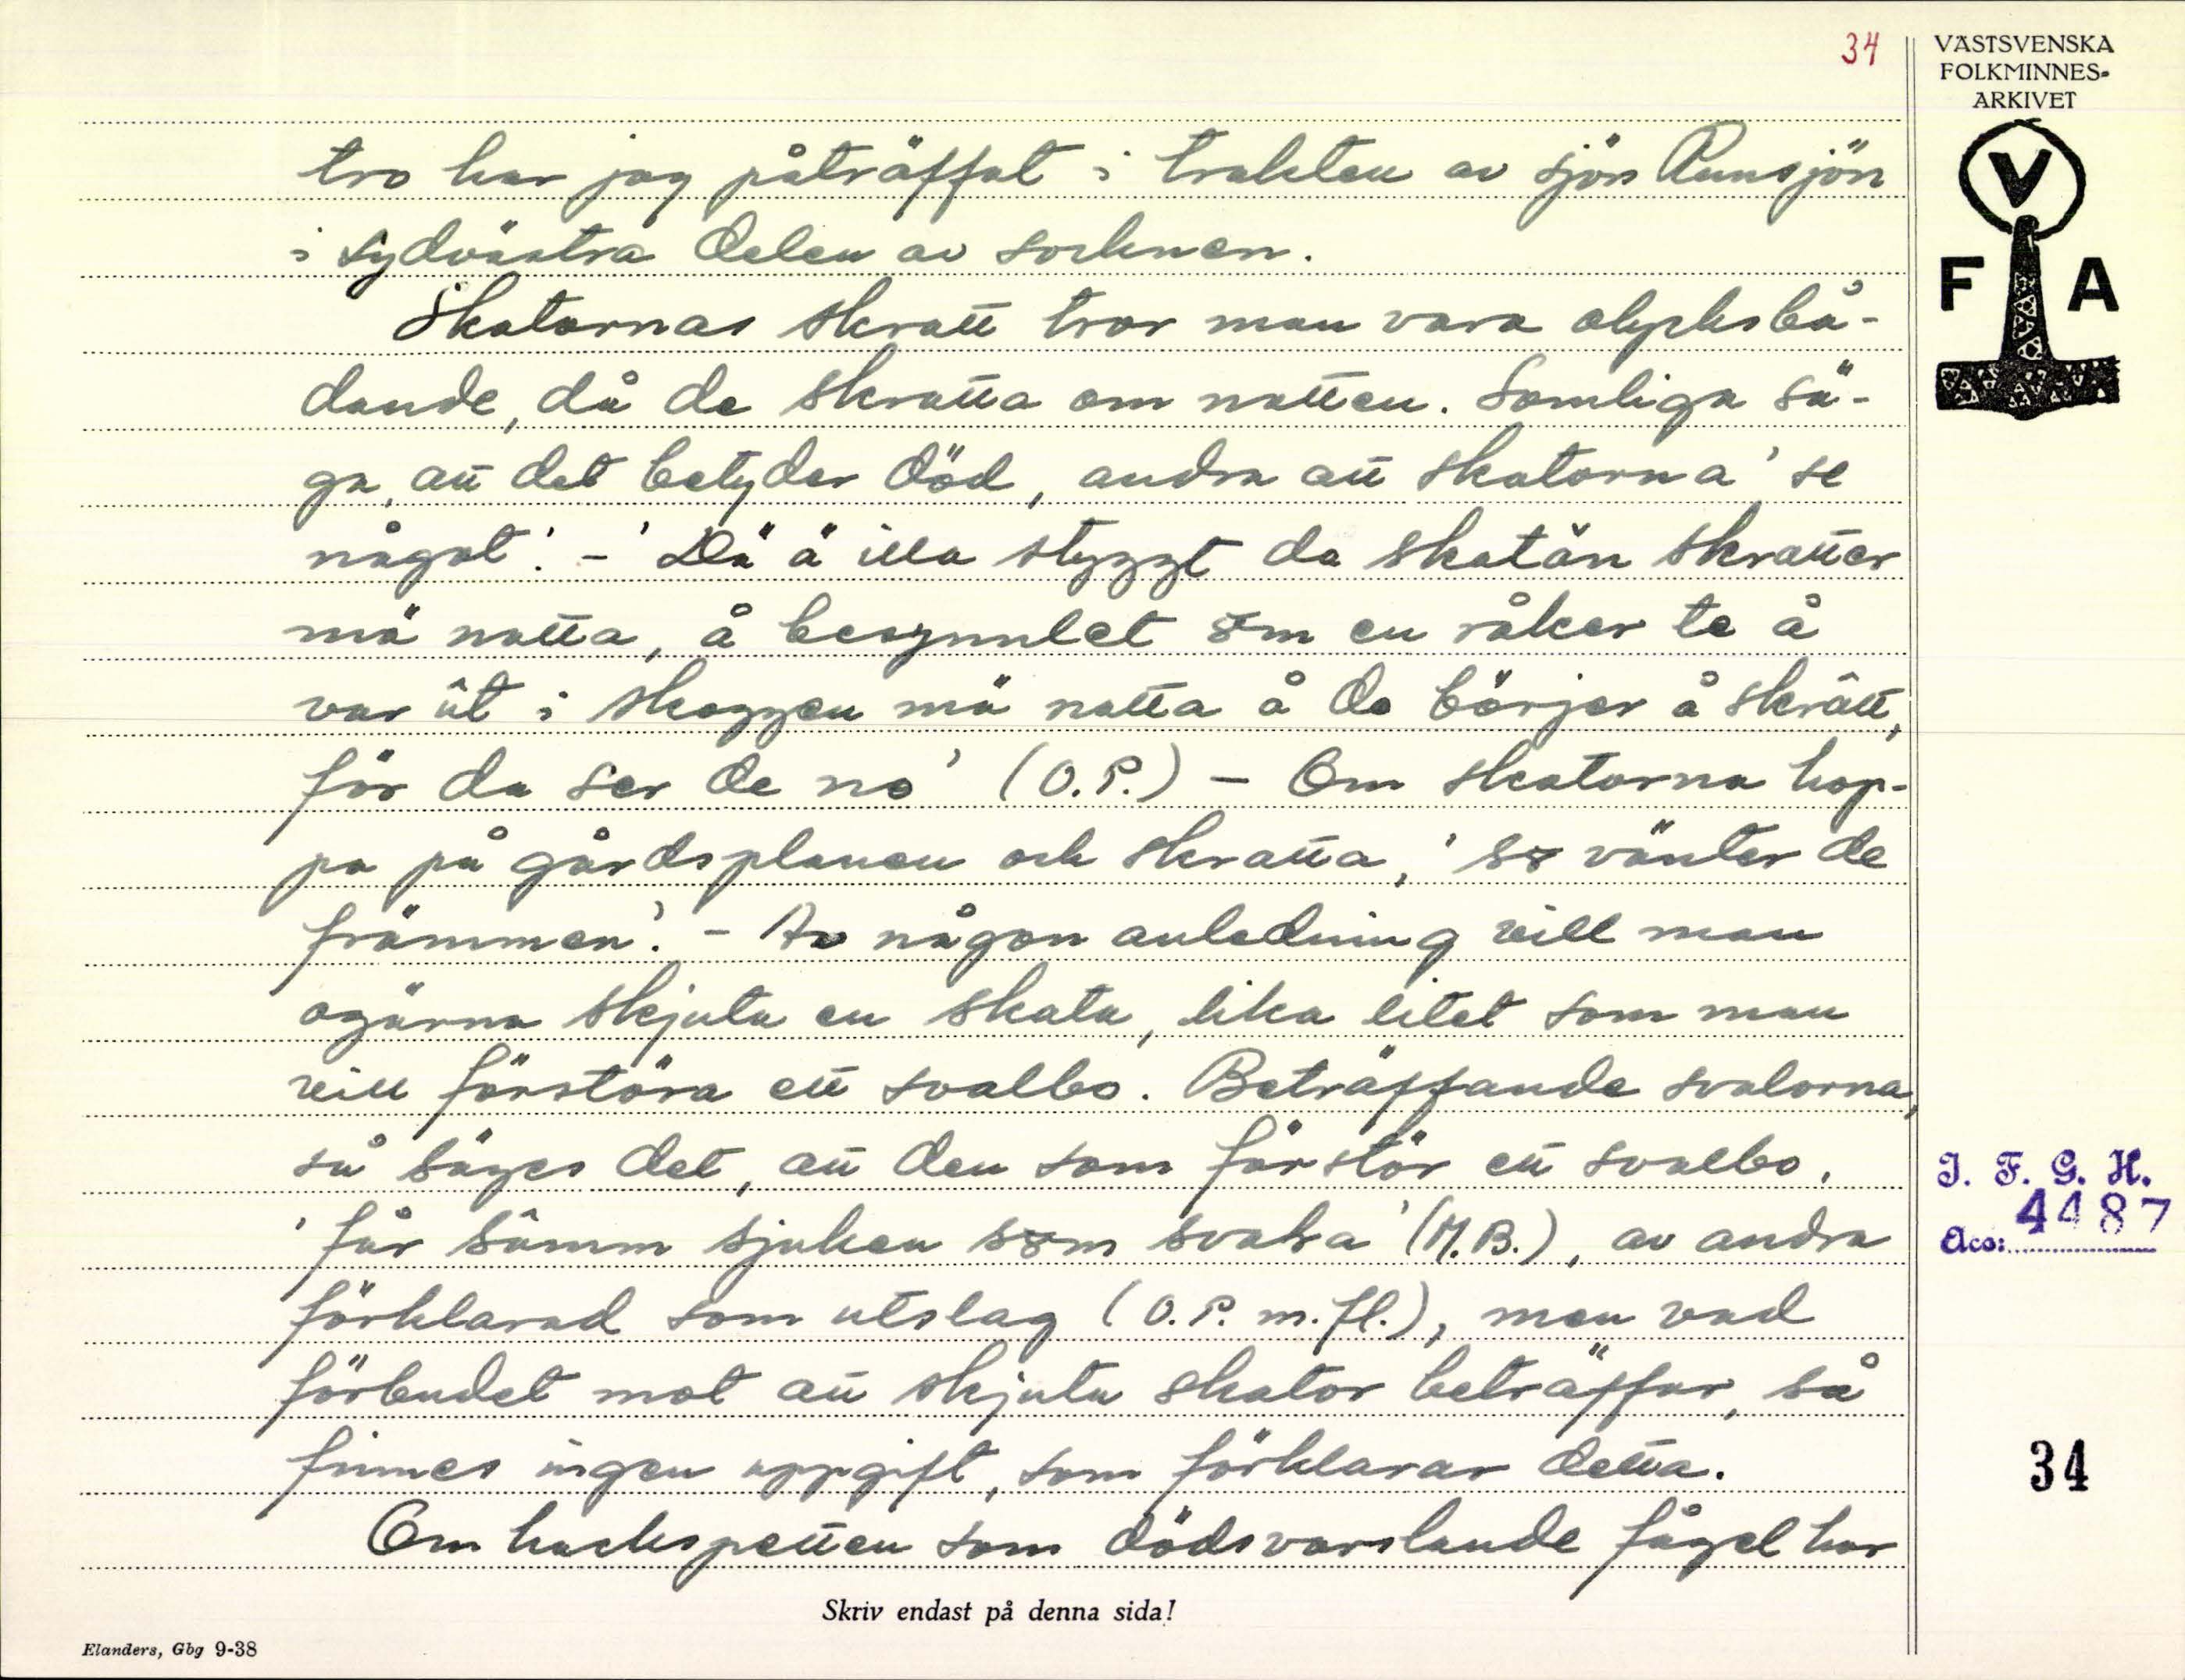 34
VÄSTSVENSKA
FOLKMINNES-
ARKIVET
V
F A
tro har jag påträffat i trakten av sjön Runsjön
i sydvästra delen av socknen.
Skatornas skratt tror man vara olycksbå-
dande, då de skratta om natten. Somliga sä-
ga, att det betyder död, andra att skatorna 'se
något'. - 'Dä ä illa styggt da skatân skratter
mä natta, å besynnlet sôm en råker te å
var ût i skoggen mä natta å de börjer å skrâtt,
för da ser de no' (O.P.) - Om skatorna hop-
pa på gårdsplanen och skratta, 'so vänter de
främmen'. - Av någon anledning vill man
ogärna skjuta en skata, lika litet som man
vill förstöra ett svalbo. Beträffande svalorna,
så säges det, att den som förstör ett svalbo,
'får sâmm sjuken som svala' (M.B.), av andra
förklarad som utslag (O.P. m.fl.), men vad
förbudet mot att skjuta skator beträffar, så
finnes ingen uppgift, som förklarar detta.
Om hackspetten som dödsvarslande fågel har
I. F. G. H.
4487
Acc:
34
Skriv endast på denna sida!
Elanders, Gbg 9-38